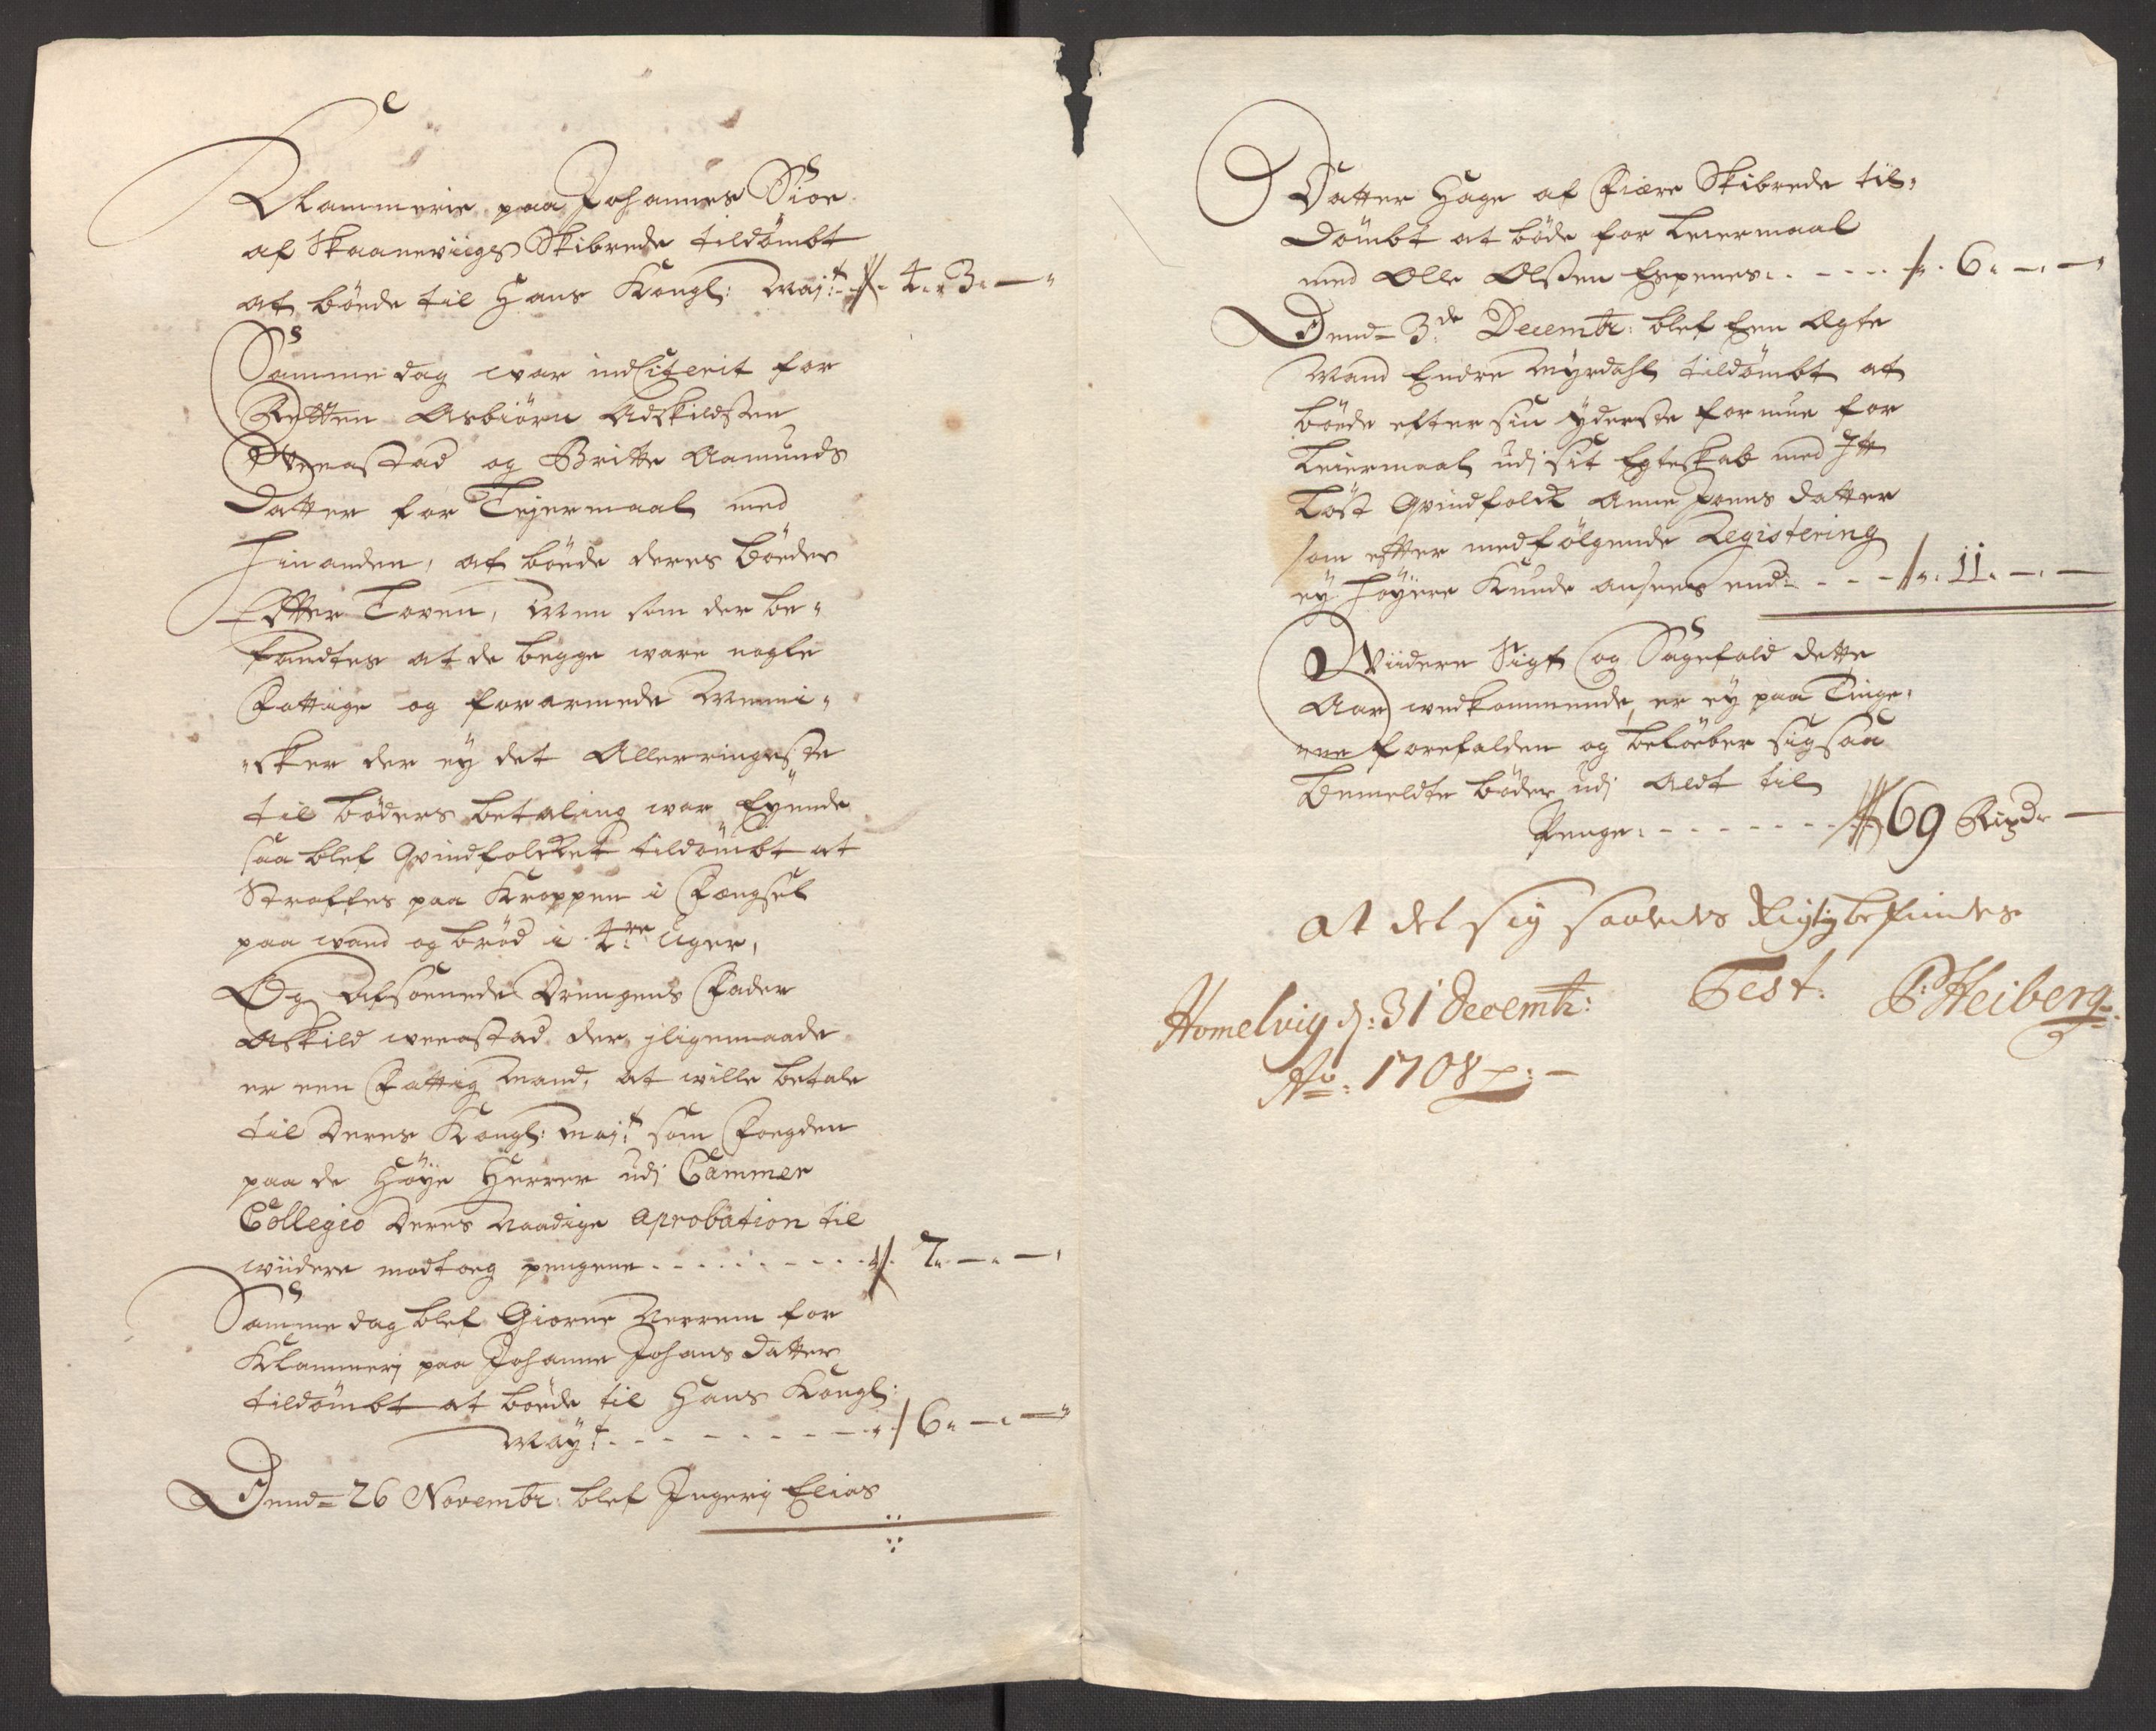 Klammerie paa Johannes Sioe
af Skaaneviigs Skibrede tildömbt
at böede til Hans Kongl: Maj:t - 4. 3. —
Samme dag war indsiterit for
Retten Asbiörn Adskildsten
Weastad og Britte Aamunds
Datter for Lejermaal med
Hinanden, at böede deres böeder
Efter Loven, Men som der be-
fandtes at de begge ware nogle
Fattige og forarmede Menni-
-sker der ey det Allerringeste
til böders betaling war Eyende
saa blef Qvindfolcket tildömbt at
Straffes paa Kroppen i Fængsel
paa wand og bröd i 4re Uger,
Og Afsonede Drengens Fader
Askild weastad der jligemaade
er een Fattig Mand, at wille betale
til Deres Kongl: Maj:t som Foegden
paa de Höye Herrer udj Cammer
Collegio Deres Naadige aprobation til
wiidere modtoeg pengene - - - 7. — . —
Samme dag blef Giorne Nerrem for
Klammerj paa Johanne Johans Datter
tildömbt at böede til Hans Kongl:
May:t - - - - 6. — . —
Dend= 26 Novembr: blef Ingerj Elias
Datter Hage af Fiære Skibrede til-
dömbt at böde for Leiermaal
med Olle Olssen Espenes - - - 6. — . —
Dend= 3de Decembr: blef Een Ægte
Mand Endre Myrdahl tildömbt at
böede efter sin yderste formue for
Leiermaal udj sit Egteskab med Itt
Löst Qvindfolck Anne Joens Datter
som efter medfölgende Registering
ey höyere Kunde ansees end: - - - 11. — . —
Wiidere Sigt og Sagefald dette
Aar wedkommende, er ey paa Tinge-
-ne forefalden og belöeber sig saa
bemeldte böder udj Aldt til
Penge: - - - - 69 Rixd. —
at det sig saaledes Rigtig befindes
Test: P: Heiberg
Homelvig d: 31 Decembr:
Ao: 1708